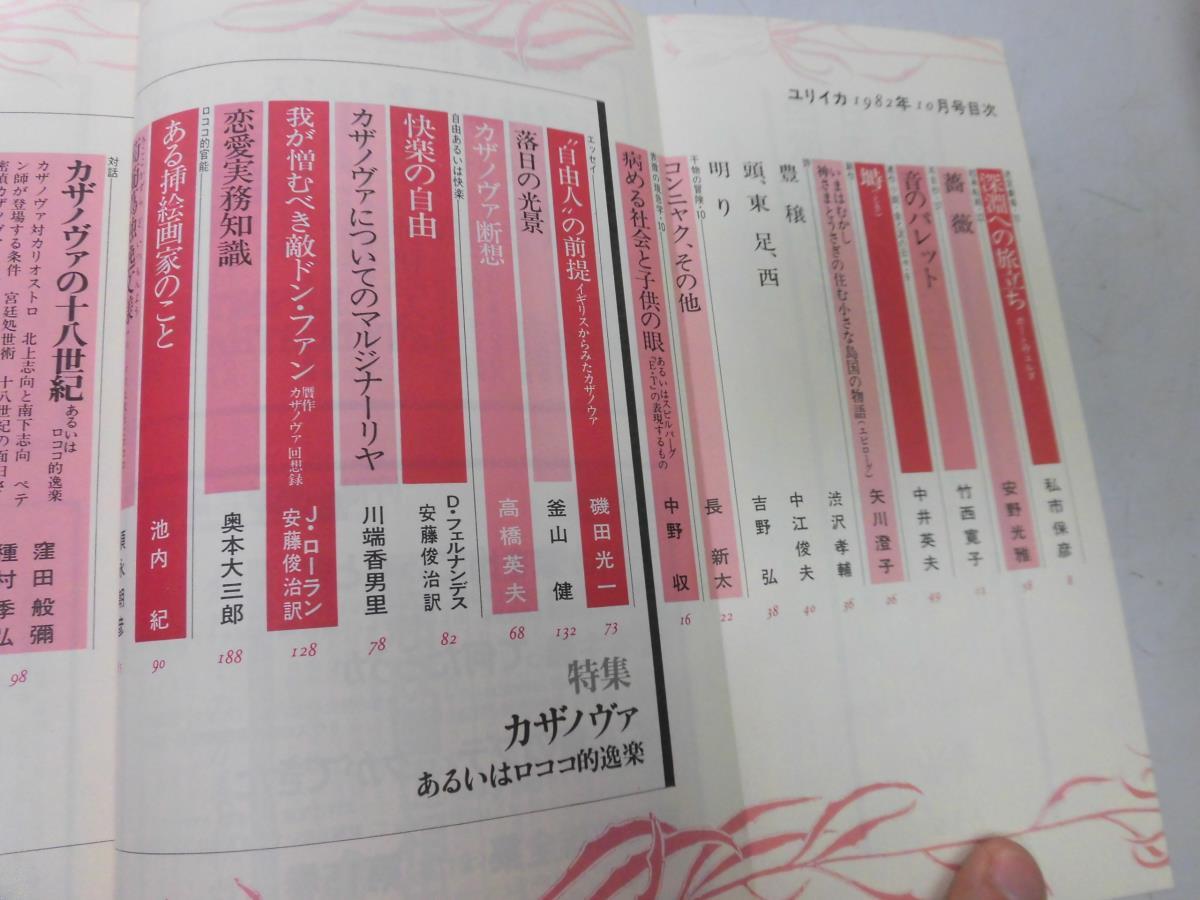 ユリイカ1982年10月号目次
深淵への旅立ち
私市保彦
8
安野光雅
薔薇
竹西寛子
音のパレット
中井英夫
49
矢川澄子
26
いまはむかし
神さまとうさぎの住む小さな島国の物語(エピローグ)
渋沢孝輔
36
豊穣
中江俊夫
40
頭、東 足、西
吉野 弘
38
明り
長 新太
22
干物の冒険・10
コンニャク、その他
病める社会と子供の眼
あるいはスピルバーグ
『E・T』の表現するもの
中野 収
16
特集
カザノヴァ
あるいはロココ的逸楽
エッセイ
“自由人”の前提 イギリスからみたカザノヴァ
磯田光一
73
落日の光景
釜山 健
132
カザノヴァ断想
高橋英夫
68
自由あるいは快楽
快楽の自由
D・フェルナンデス
安藤俊治訳
82
カザノヴァについてのマルジナーリヤ
川端香男里
78
我が憎むべき敵ドン・ファン
贋作
カザノヴァ回想録
J・ローラン
安藤俊治訳
128
恋愛実務知識
奥本大三郎
188
ロココ的官能
ある挿絵画家のこと
池内 紀
90
対話
カザノヴァの十八世紀
あるいは
ロココ的逸楽
カザノヴァ対カリオストロ 北上志向と南下志向 ペテ
ン師が登場する条件 宮廷処世術 十八世紀の面白さ
窪田般彌
種村季弘
98